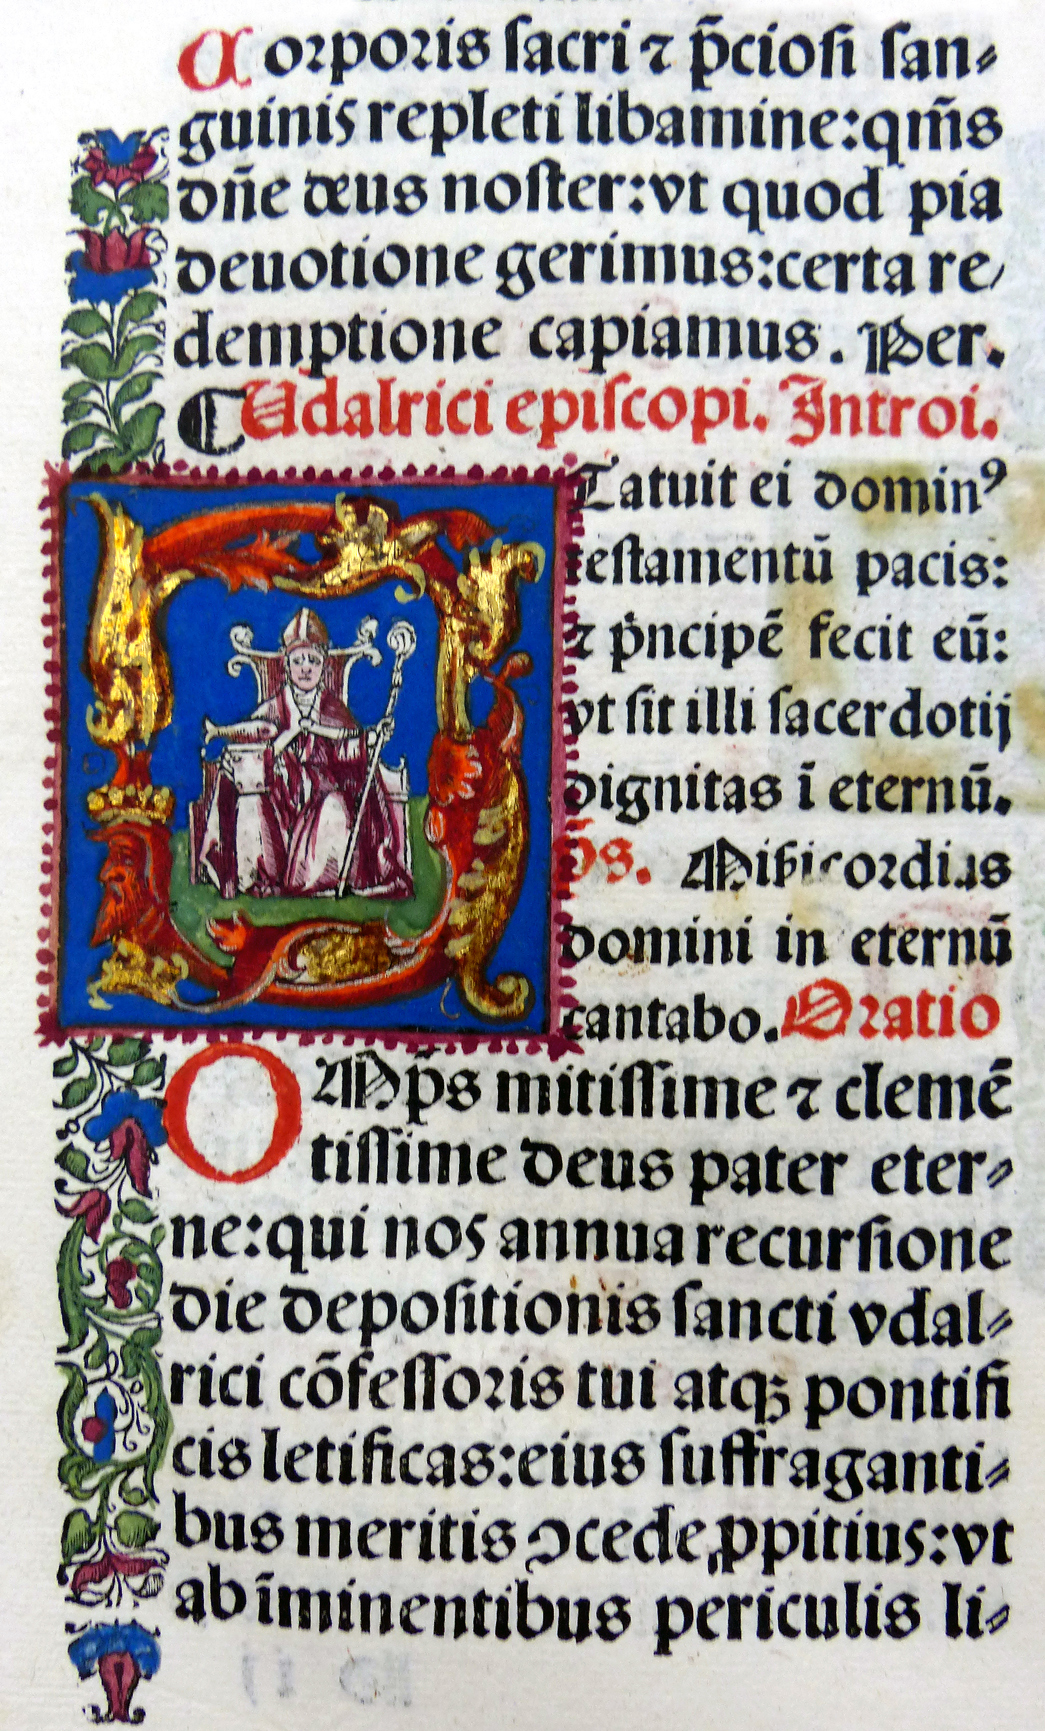 Corporis sacri ⁊ p̄ciosi san⸗
guinis repleti libamine: qm̄s
dn̄e deus noster: vt quod pia
deuotione gerimus: certa re/
demptione capiamus. Per.
¶ Udalrici episcopi. Introi.
Statuit ei dominꝰ
testamentū pacis:
⁊ pͥncipē fecit eū:
vt sit illi sacerdotij
dignitas ī eternū.
p̄s. Misericordias
domini in eternū
cantabo. Oratio
OMp̄s mitissime ⁊ clemē
tissime deus pater eter⸗
ne: qui nos annua recursione
die depositionis sancti vdal⸗
rici cōfessoris tui atqꝫ pontifi
cis letificas: eius suffraganti⸗
bus meritis ꝯcede ꝓpitius: vt
ab īminentibus periculis li⸗